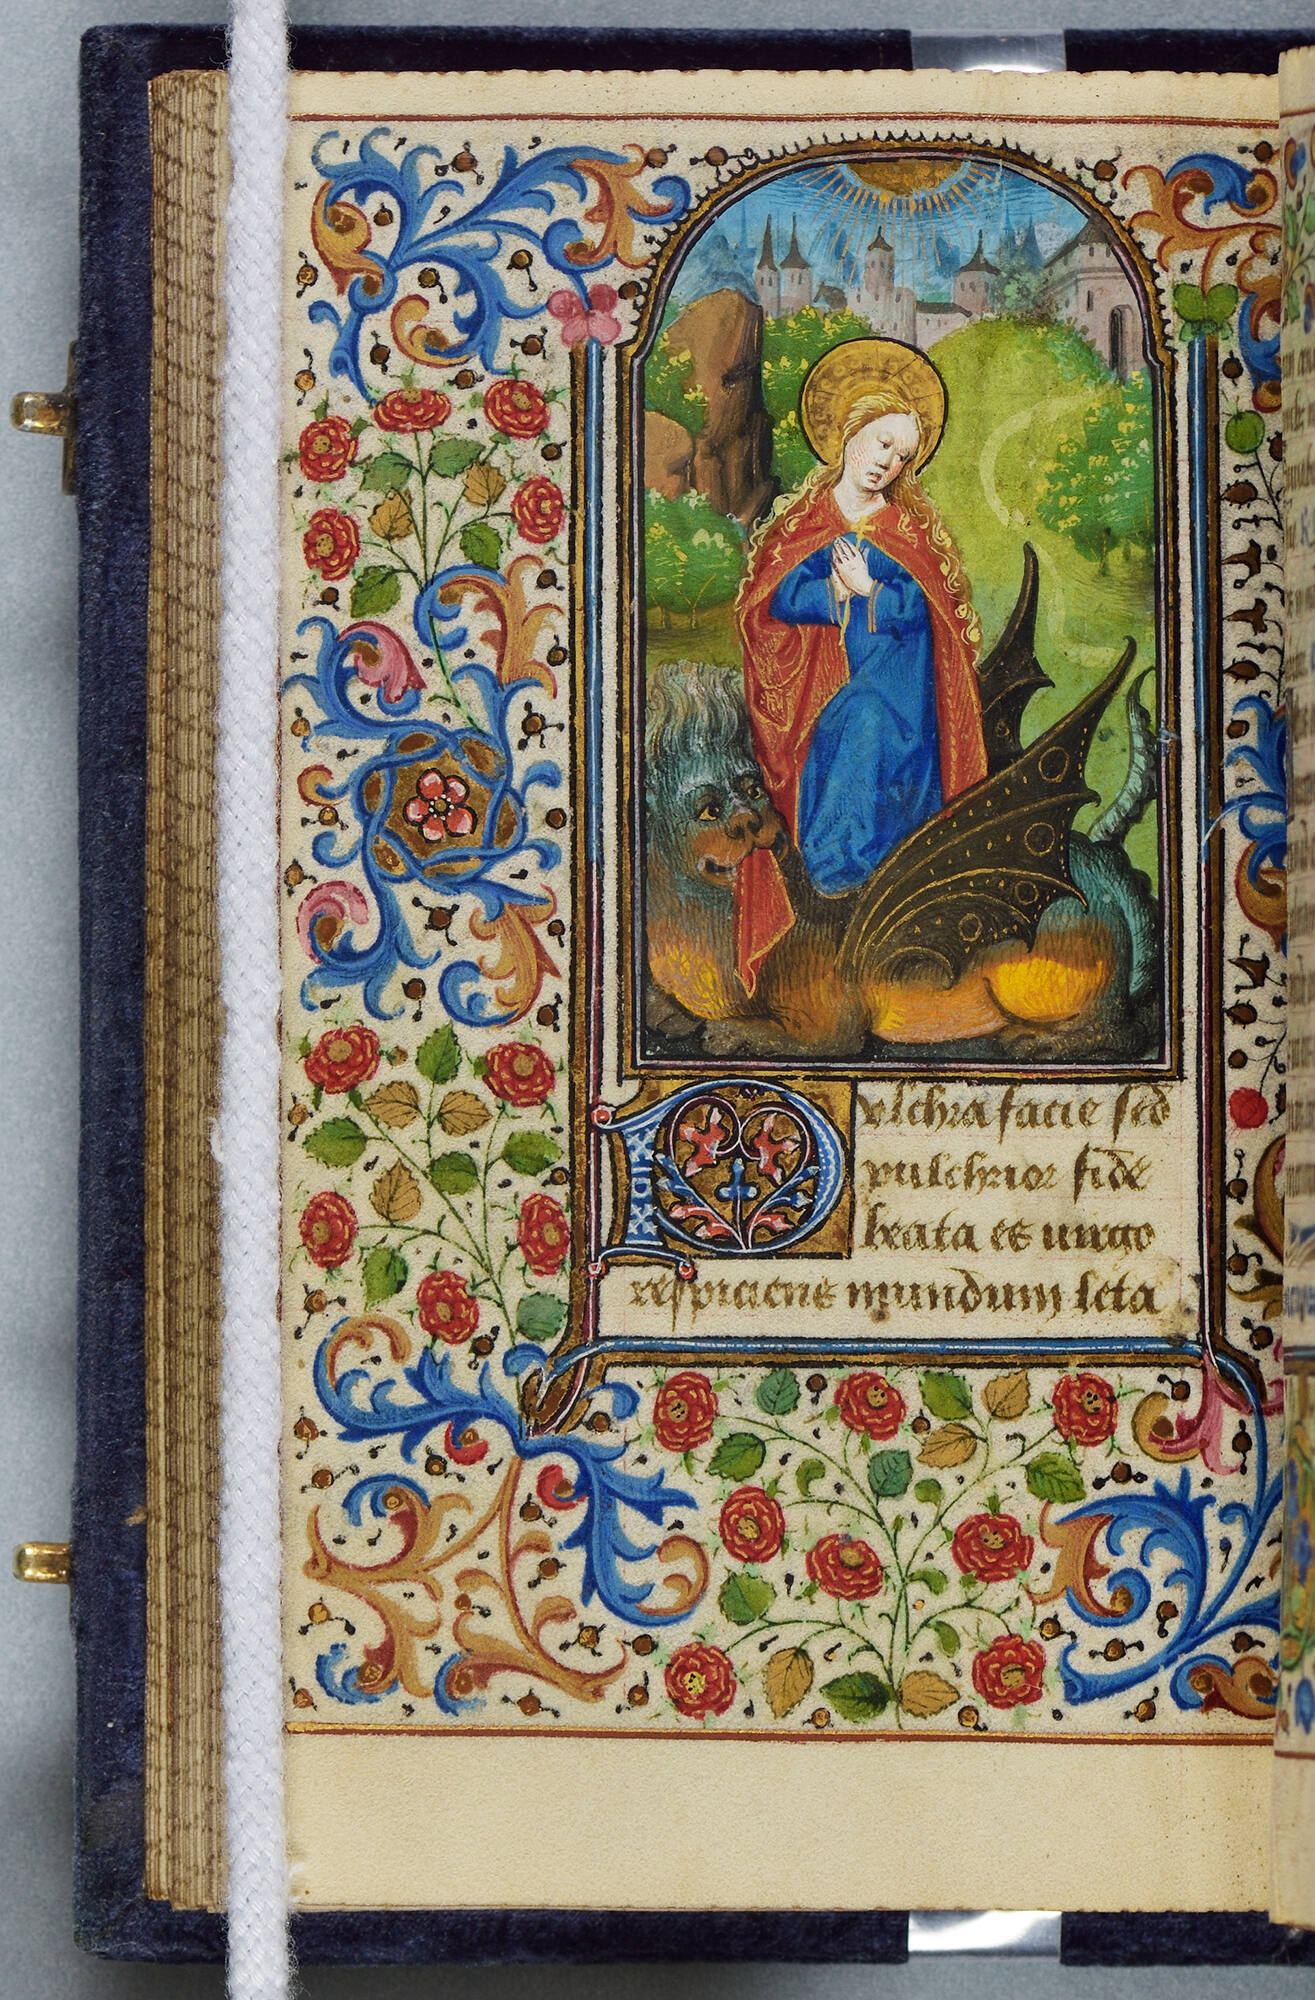 Pulchra facie sed
pulchrior fide
beata es uirgo
respiciens mundum leta